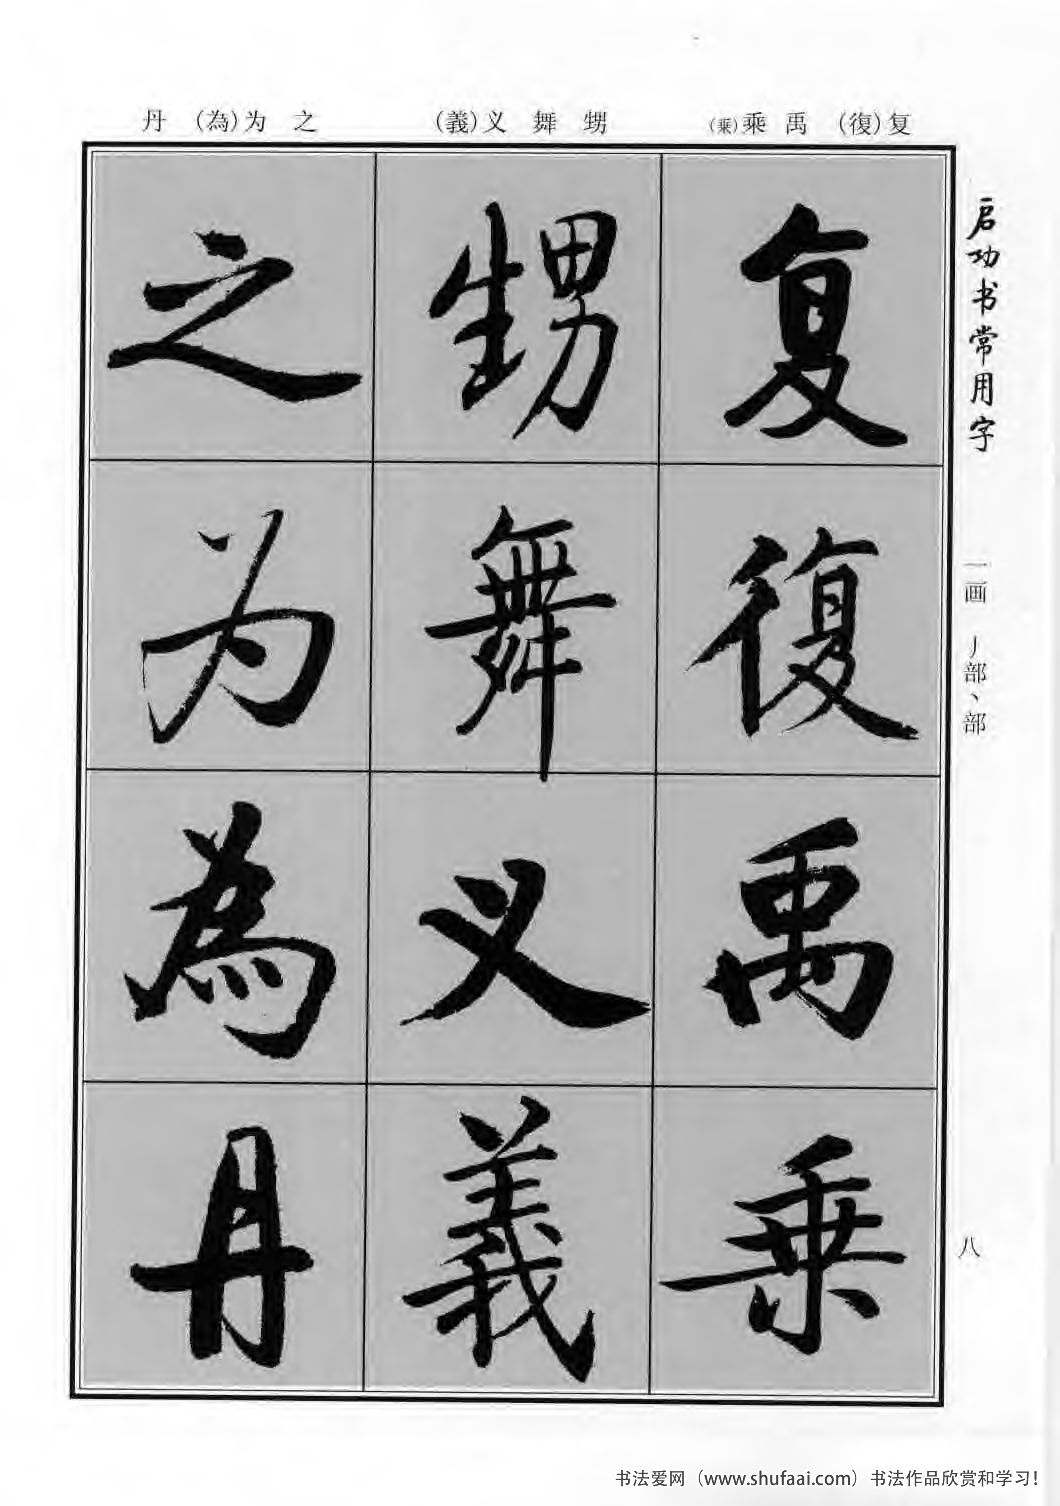 丹 (為)为 之 (義)义 舞 甥 (乗)乘 禹 (復)复
启功书常用字
一画 丿部丶部
八
复復禹乗
甥舞义義
之为為丹
书法爱网（www.shufaai.com）书法作品欣赏和学习！